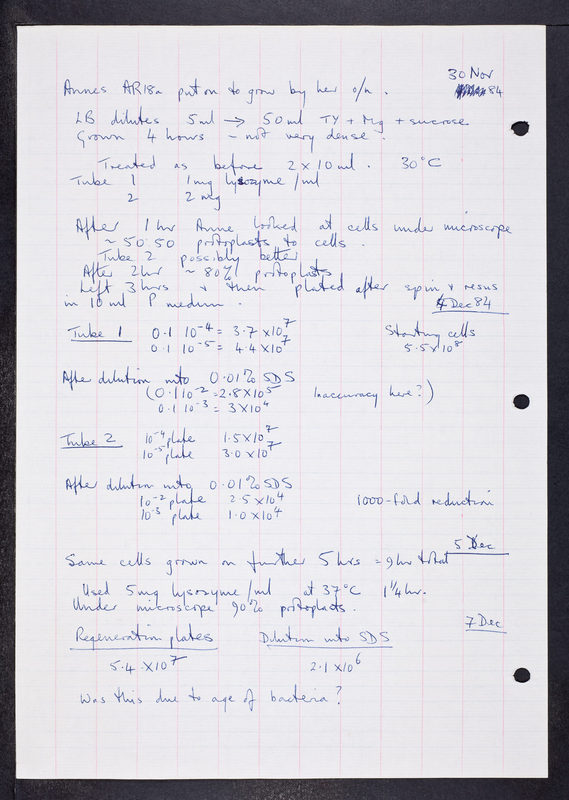 30 Nov
Annes AR18a put on to grow by her o/n.
84
LB dilutes 5ml → 50ml TY + Mg + sucrose
Grown 4 hours - not very dense.
Treated as before 2 x 10 ml. 30°C
Tube 1 1mg lysozyme /ml
2 2 mg
After 1 hr Anne looked at cells under microscope
~ 50:50 protoplasts to cells.
Tube 2 possibly better
After 2hr ~ 80% protoplasts
Left 3 hrs & then plated after spin & resus
in 10 ml P medium.
4 Dec 84
Tube 1 0.1 10⁻⁴ = 3.7 x 10⁷ Starting cells
0.1 10⁻⁵ = 4.4 x 10⁷ 5.5 x 10⁸
After dilution into 0.01% SDS
(0.1 10⁻² = 2.8 x 10⁵ Inaccuracy here?)
0.1 10⁻³ = 3 x 10⁴
Tube 2 10⁻⁴ plate 1.5 x 10⁷
10⁻⁵ plate 3.0 x 10⁷
After dilution into 0.01% SDS
10⁻² plate 2.5 x 10⁴ 1000-fold reduction
10⁻³ plate 1.0 x 10⁴
5 Dec
Same cells grown on further 5 hrs = 9hr total
Used 5mg lysozyme /ml at 37°C 1 1/4 hr.
Under microscope 90% protoplasts.
7 Dec
Regeneration plates Dilution into SDS
5.4 x 10⁷ 2.1 x 10⁶
Was this due to age of bacteria?